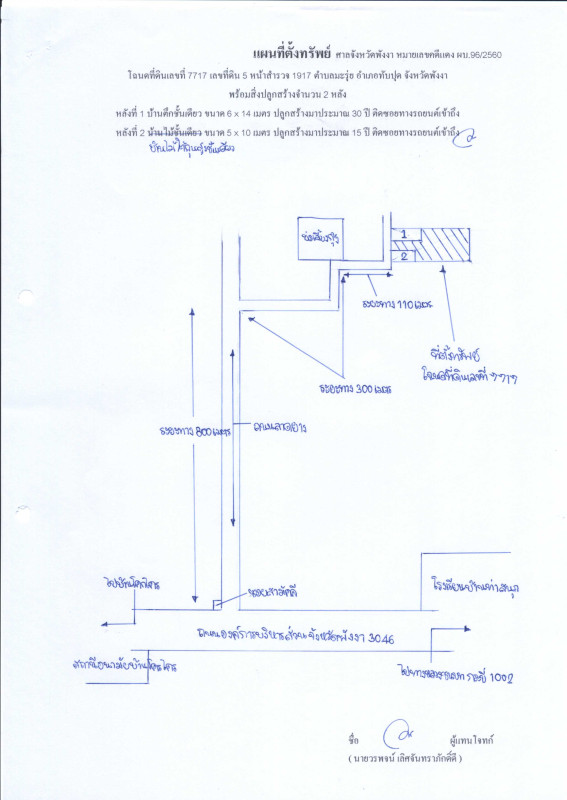 แผนที่ตั้งทรัพย์ ศาลจังหวัดพังงา หมายเลขคดีแดง ผบ.96/2560
โฉนดที่ดินเลขที่ 7717 เลขที่ดิน 5 หน้าสำรวจ 1917 ตำบลมะรุ่ย อำเภอทับปุด จังหวัดพังงา
พร้อมสิ่งปลูกสร้างจำนวน 2 หลัง
หลังที่ 1 บ้านตึกชั้นเดียว ขนาด 6 x 14 เมตร ปลูกสร้างมาประมาณ 30 ปี ติดซอยทางรถยนต์เข้าถึง
หลังที่ 2 บ้านไม้ชั้นเดียว ขนาด 5 x 10 เมตร ปลูกสร้างมาประมาณ 15 ปี ติดซอยทางรถยนต์เข้าถึง
บ้านไม้ใต้ถุนสูงชั้นเดียว
1
2
บ่อเลี้ยงกุ้ง
ระยะทาง 110 เมตร
ที่ตั้งทรัพย์
โฉนดที่ดินเลขที่ 7717
ระยะทาง 300 เมตร
ระยะทาง 800 เมตร
ถนนลาดยาง
ไปบ้านโคกไคร
ซอยสามัคคี
โรงเรียนบ้านท่าสนุก
ถนนองค์การบริหารส่วนจังหวัดพังงา 3046
สถานีอนามัยบ้านโคกไคร
ไปทางหลวงชนบท 1002
ชื่อ ผู้แทนโจทก์
( นายวรพจน์ เลิศจันทราภักดิ์ดี )